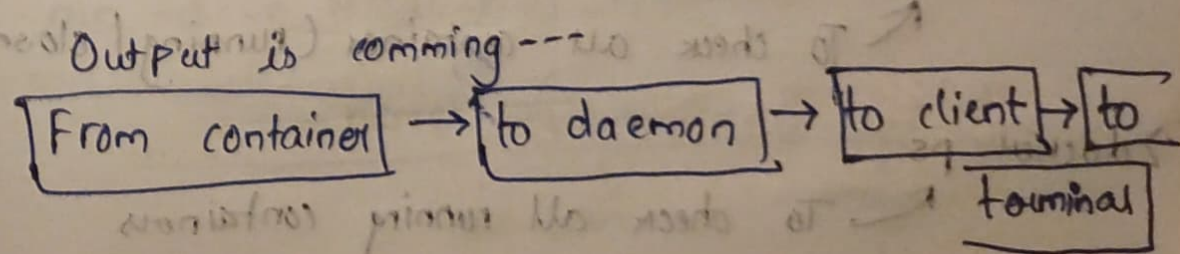 Output is comming ---
From container → to daemon → to client → to
terminal